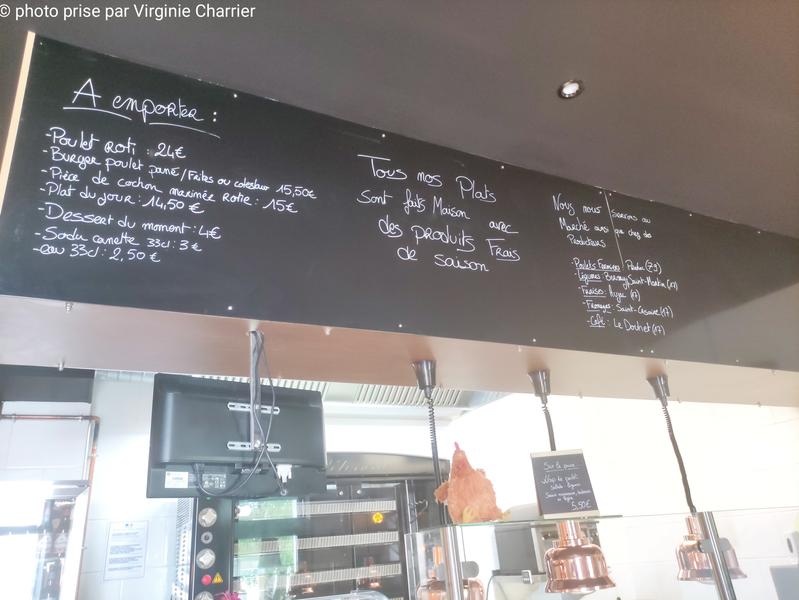 © photo prise par Virginie Charrier
A emporter :
-Poulet Roti : 24€
-Burger poulet pané/Frites ou coleslaw 15,50€
-Pièce de cochon marinée Rotie : 15€
-Plat du jour : 14,50€
-Dessert du moment : 4€
-Soda canette 33cl : 3€
-eau 33cl : 2,50€
Tous nos Plats
Sont faits Maison avec
des produits Frais
de saison
Nous nous servons au
Marché ainsi que chez des
Producteurs
-Poulets Fermiers : (79)
-Légumes : Saint-Martin (17)
-Fraises : (17)
-Fromages : Saint-Césaire (17)
-Café : Le Dochet (17)
Sur le pouce
5,50€